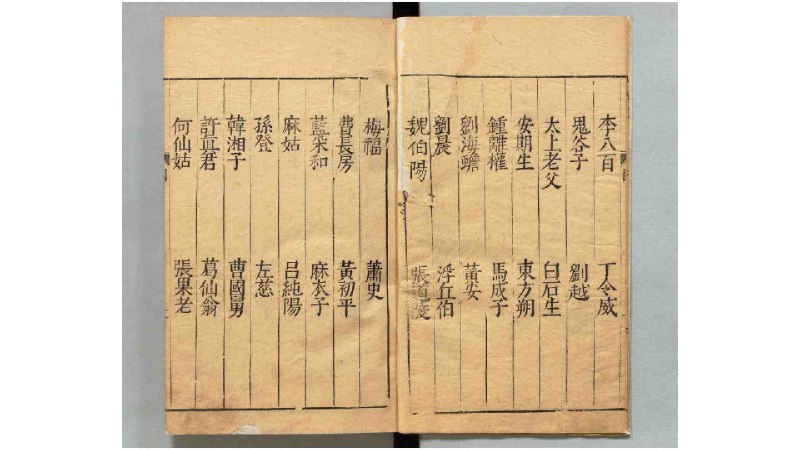 李八百 丁令威
鬼谷子 劉越
太上老父 白石生
安期生 東方朔
鍾離權 馬成子
劉海蟾 黃安
劉晨 浮丘伯
魏伯陽 張道陵
梅福 蕭史
費長房 黃初平
藍采和 麻衣子
麻姑 呂純陽
孫登 左慈
韓湘子 曹國舅
許眞君 葛仙翁
何仙姑 張果老